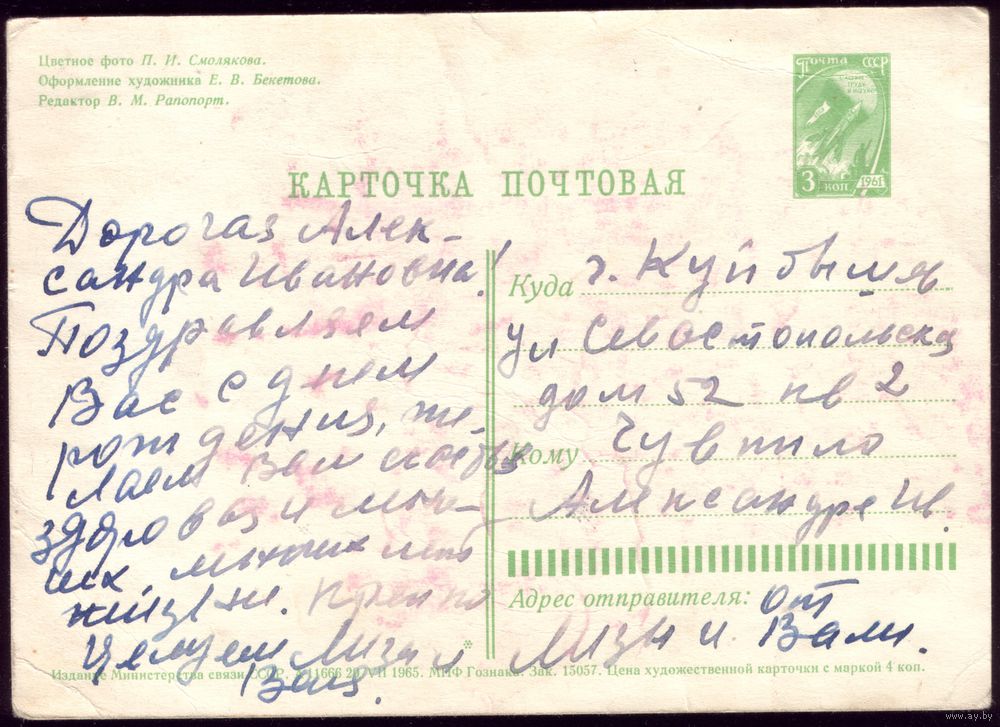 Цветное фото П. И. Смолякова.
Оформление художника Е. В. Бекетова.
Редактор В. М. Рапопорт.
Почта СССР
3 коп
1961
КАРТОЧКА ПОЧТОВАЯ
Дорогая Алек-
сандра Ивановна!
Поздравляем
Вас с днем
рождения, же-
лаем Вам
здоровья и
многих лет
жизни. Крепко
Целуем Лиза и
Валя.
Куда г. Куйбышев
ул Севастопольская
дом 52 кв 2
Кому Чувтило
Александре Ив.
Адрес отправителя: от
Лизы и Вали.
Издание Министерства связи СССР. А 11666 20/VII 1965. МПФ Гознака. Зак. 15057. Цена художественной карточки с маркой 4 коп.
www.ay.by